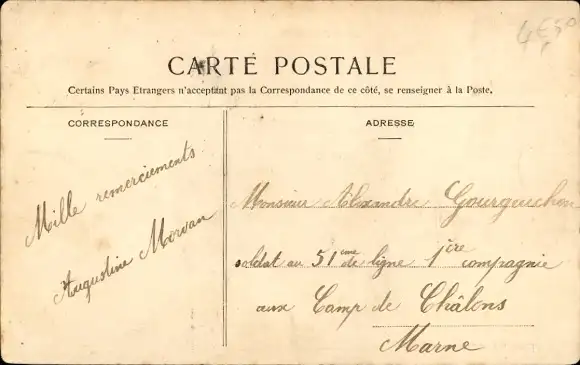 4E50
CARTE POSTALE
Certains Pays Etrangers n'acceptant pas la Correspondance de ce côté, se renseigner à la Poste.
CORRESPONDANCE
Mille remerciements
Augustine Morvan
ADRESSE
Monsieur Alexandre Gourgeuchon
soldat au 51eme de ligne 1ère compagnie
aux Camp de Châlons
Marne